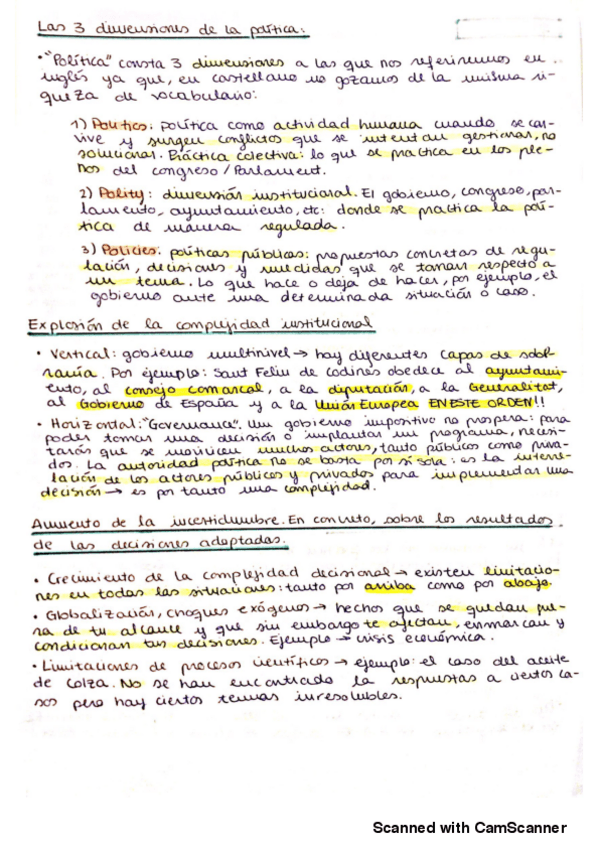 Las 3 dimensiones de la política:
• "Política" consta 3 dimensiones a las que nos referiremos en
inglés ya que, en castellano no gozamos de la misma ri-
queza de vocabulario:
1) Politics: política como actividad humana cuando se con-
vive y surgen conflictos que se intentan gestionar, no
solucionar. Práctica colectiva: lo que se practica en los ple-
nos del congreso/Parlament.
2) Polity: dimensión institucional. El gobierno, congreso, par-
lamento, ayuntamiento, etc: donde se practica la polí-
tica de manera regulada.
3) Policies: políticas públicas: propuestas concretas de regu-
lación, decisiones y medidas que se toman respecto a
un tema. Lo que hace o deja de hacer, por ejemplo, el
gobierno ante una determinada situación o caso.
Explosión de la complejidad institucional
• Vertical: gobierno multinivel → hay diferentes capas de sobe-
ranía. Por ejemplo: Sant Feliu de Codines obedece al ayuntami-
ento, al consejo comarcal, a la diputación, a la Generalitat,
al Gobierno de España y a la Unión Europea EN ESTE ORDEN!!
• Horizontal: "Governance". Un gobierno impositivo no prospera: para
poder tomar una decisión o implantar un programa, necesi-
tarás que se movilicen muchos actores, tanto públicos como priva-
dos. La autoridad política no se basta por sí sola: es la interre-
lación de los actores públicos y privados para implementar una
decisión → es por tanto una complejidad.
Aumento de la incertidumbre. En concreto, sobre los resultados
de las decisiones adoptadas.
• Crecimiento de la complejidad decisional → existen limitacio-
nes en todas las situaciones: tanto por arriba como por abajo.
• Globalización, choques exógenos → hechos que se quedan fue-
ra de tu alcance y que sin embargo te afectan, enmarcan y
condicionan tus decisiones. Ejemplo → crisis económica.
• Limitaciones de procesos científicos → ejemplo: el caso del aceite
de colza. No se han encontrado la respuestas a ciertos ca-
sos pero hay ciertos temas irresolubles.
Scanned with CamScanner